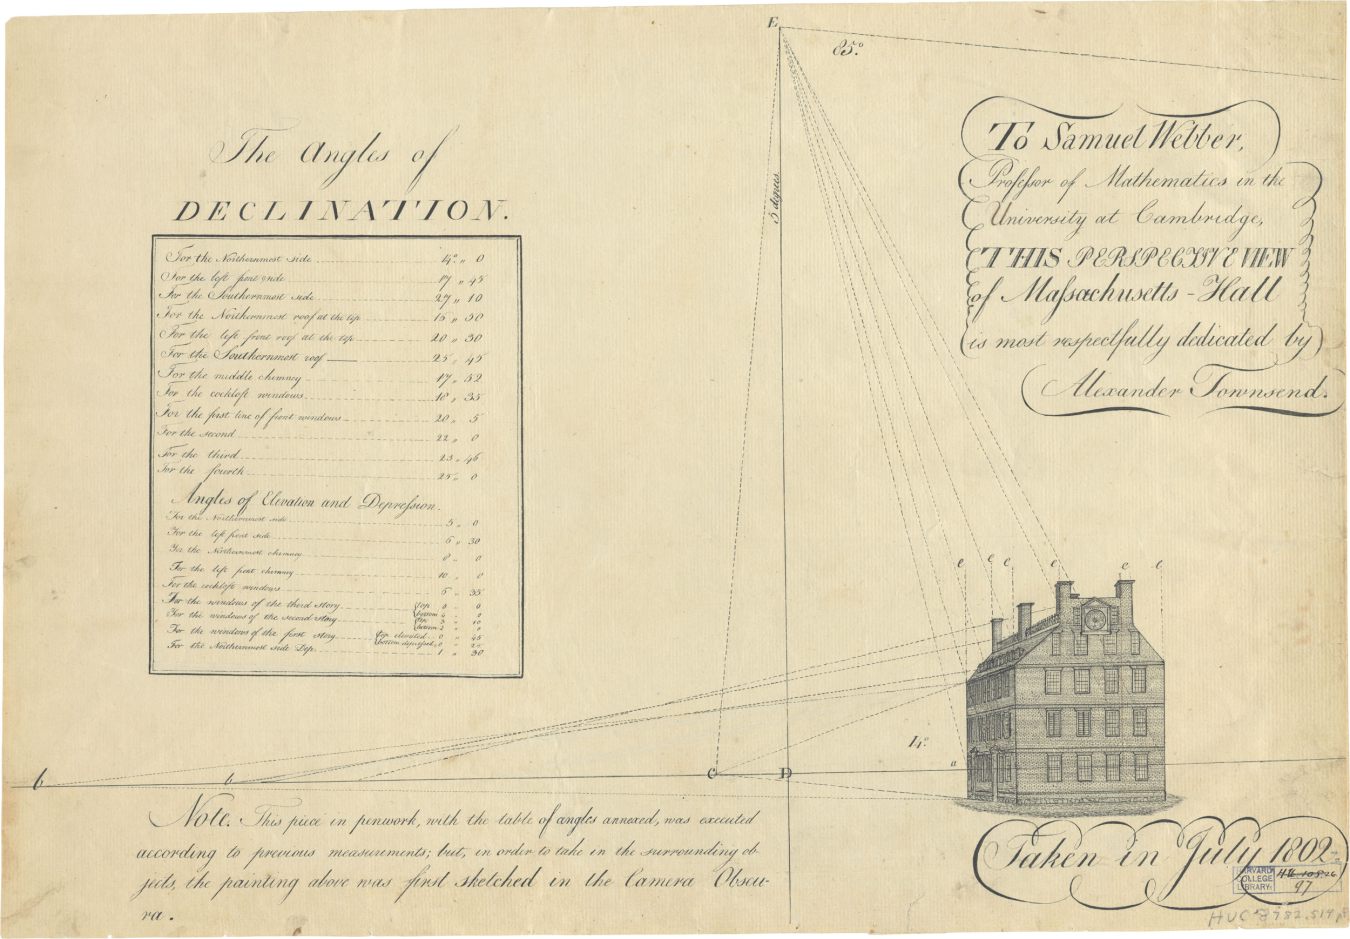 E
85°
5 degrees
The Angles of
DECLINATION.
For the Northernmost side 14° „ 0
For the left front side 17 „ 45
For the Southernmost side 27 „ 10
For the Northernmost roof at the top 15 „ 30
For the left front roof at the top 20 „ 30
For the Southernmost roof 25 „ 45
For the middle chimney 17 „ 52
For the cockloft windows 18 „ 35
For the first line of front windows 20 „ 5
For the second 22 „ 0
For the third 23 „ 46
For the fourth 25 „ 0
Angles of Elevation and Depression.
For the Northernmost side 5 „ 0
For the left front side 6 „ 30
For the Northernmost chimney 8 „ 0
For the left front chimney 10 „ 0
For the cockloft windows 5 „ 35
For the windows of the third story top
bottom
For the windows of the second story top 3 „ 10
bottom 2 „ 0
For the windows of the first story top elevated 0 „ 45
bottom depressed 0 „ 25
For the Northernmost side Dep. 1 „ 30
To Samuel Webber,
Professor of Mathematics in the
University at Cambridge,
THIS PERSPECTIVE VIEW
of Massachusetts-Hall
is most respectfully dedicated by
Alexander Townsend.
e e e e e e
14°
b b C D a
Note. This piece in penwork, with the table of angles annexed, was executed
according to previous measurements; but, in order to take in the surrounding ob-
jects, the painting above was first sketched in the Camera Obscu-
ra.
Taken in July 1802
HARVARD
COLLEGE
LIBRARY
97
HUC